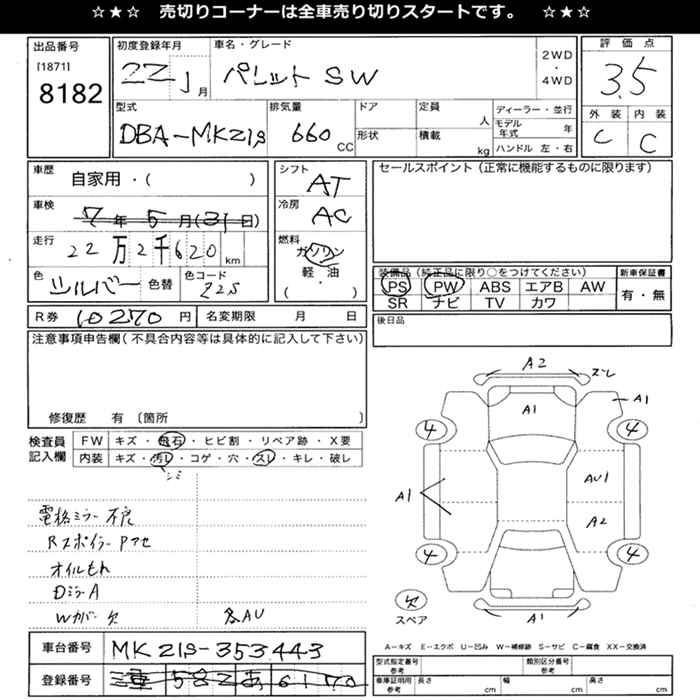 ☆★☆ 売切りコーナーは全車売り切りスタートです。 ☆★☆
出品番号 初度登録年月 車名・グレード 評価点
[1871] 22 1月 パレット SW 2WD・4WD 3.5
8182
型式 排気量 ドア 定員 人 ディーラー・並行 外装 内装
DBA-MK21S 660 CC 形状 積載 kg モデル年式 年 C C
ハンドル 左・右
車歴 自家用・( ) シフト AT セールスポイント(正常に機能するものに限ります)
車検 7年5月(31日) 冷房 AC
走行 22万2千620 km 燃料 ガソリン
軽・油
( )
色 シルバー 色替 色コード Z2S
装備品(純正品に限り○をつけてください) 新車保証書
PS PW ABS エアB AW 有・無
SR ナビ TV カワ
R券 10270 円 名変期限 月 日 後日品
注意事項申告欄(不具合内容等は具体的に記入して下さい)
修復歴 有 〔箇所 〕
検査員記入欄 FW キズ・飛石・ヒビ割・リペア跡・X要
内装 キズ・汚レ・コゲ・穴・スレ・キレ・破レ
シミ
電格ミラー不良
RスポイラーPアセ
オイルもれ
DミラーA
Wカバー欠 各AU
A2 ズレ
A1 A1
4 4
A1 AU1
A2
4 4
欠 A1
スペア
A-キズ E-エクボ U-凹み W-補修跡 S-サビ C-腐食 XX-交換済
車台番号 MK21S-353443
登録番号 582 あ 6170
型式指定番号 参考 類別区分番号 参考
車庫証明用 参考 長さ cm 幅 cm 高さ cm